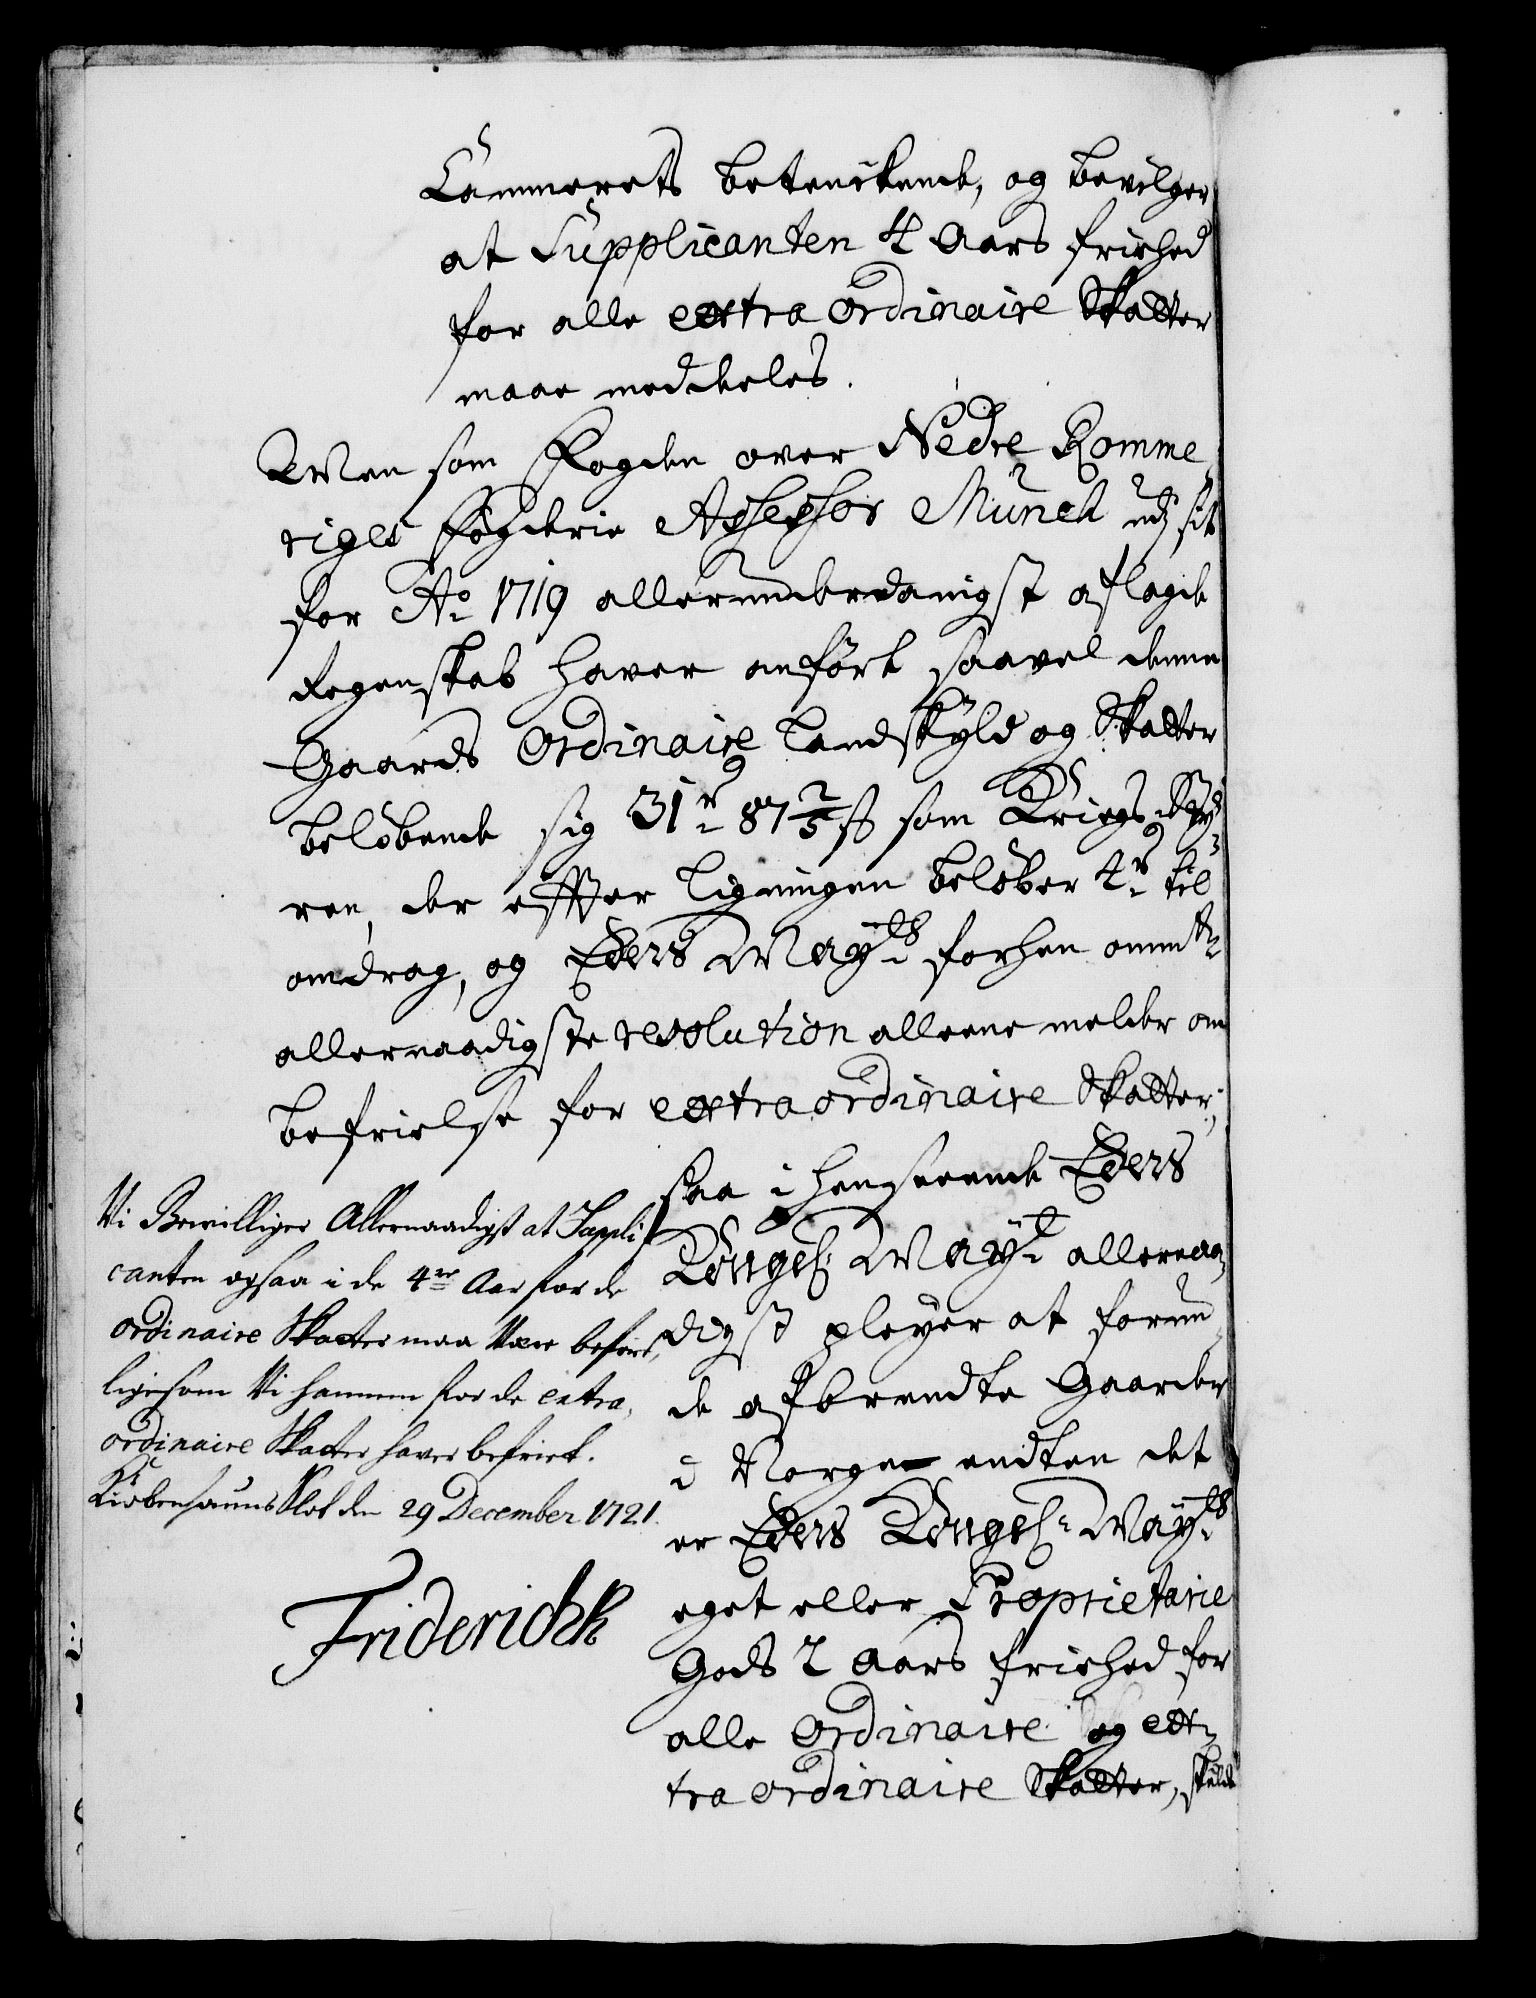 Cammerets betenckende, og bevilger
at Supplicanten 4 Aars friehed
for alle extra ordinaire Skatter
maae meddeeles.
Men som Fogden over Nedre Romme
riges Fogderie Assessor Münch udj sit
for Ao 1719 allerunderdanigst aflagde
Regenskab haver anført saavel denne
Gaards Ordinaire Landskyld og Skatter
beløbende sig 31 r 87 2/5 s som Kriegs Sty
ren, der effter Ligningen beløber 4 r til
omdrag, og Eders Mayts forhen ommelte
allernaadigste resolution alleene melder om
befrielse for extraordinaire Skatter,
saa i henseende Eders
Kongel: Mayt allernaa
digst pleyer at forun
de afbrendte Gaarder
i Norge endten det
er Eders Kongel: Mayts
eget eller Proprietarie
Gods 2 Aars friehed for
alle Ordinaire og ex
tra ordinaire Skatter, skulde
Vi Bewilliger Allernaadigst at Suppli
canten ogsaa i de 4re Aar for de
ordinaire Skatter maa være befriet,
ligesom Vi hannem for de extra
ordinaire Skatter haver befriet.
Kiøbenhauns Slot den 29 December 1721.
Friderich R